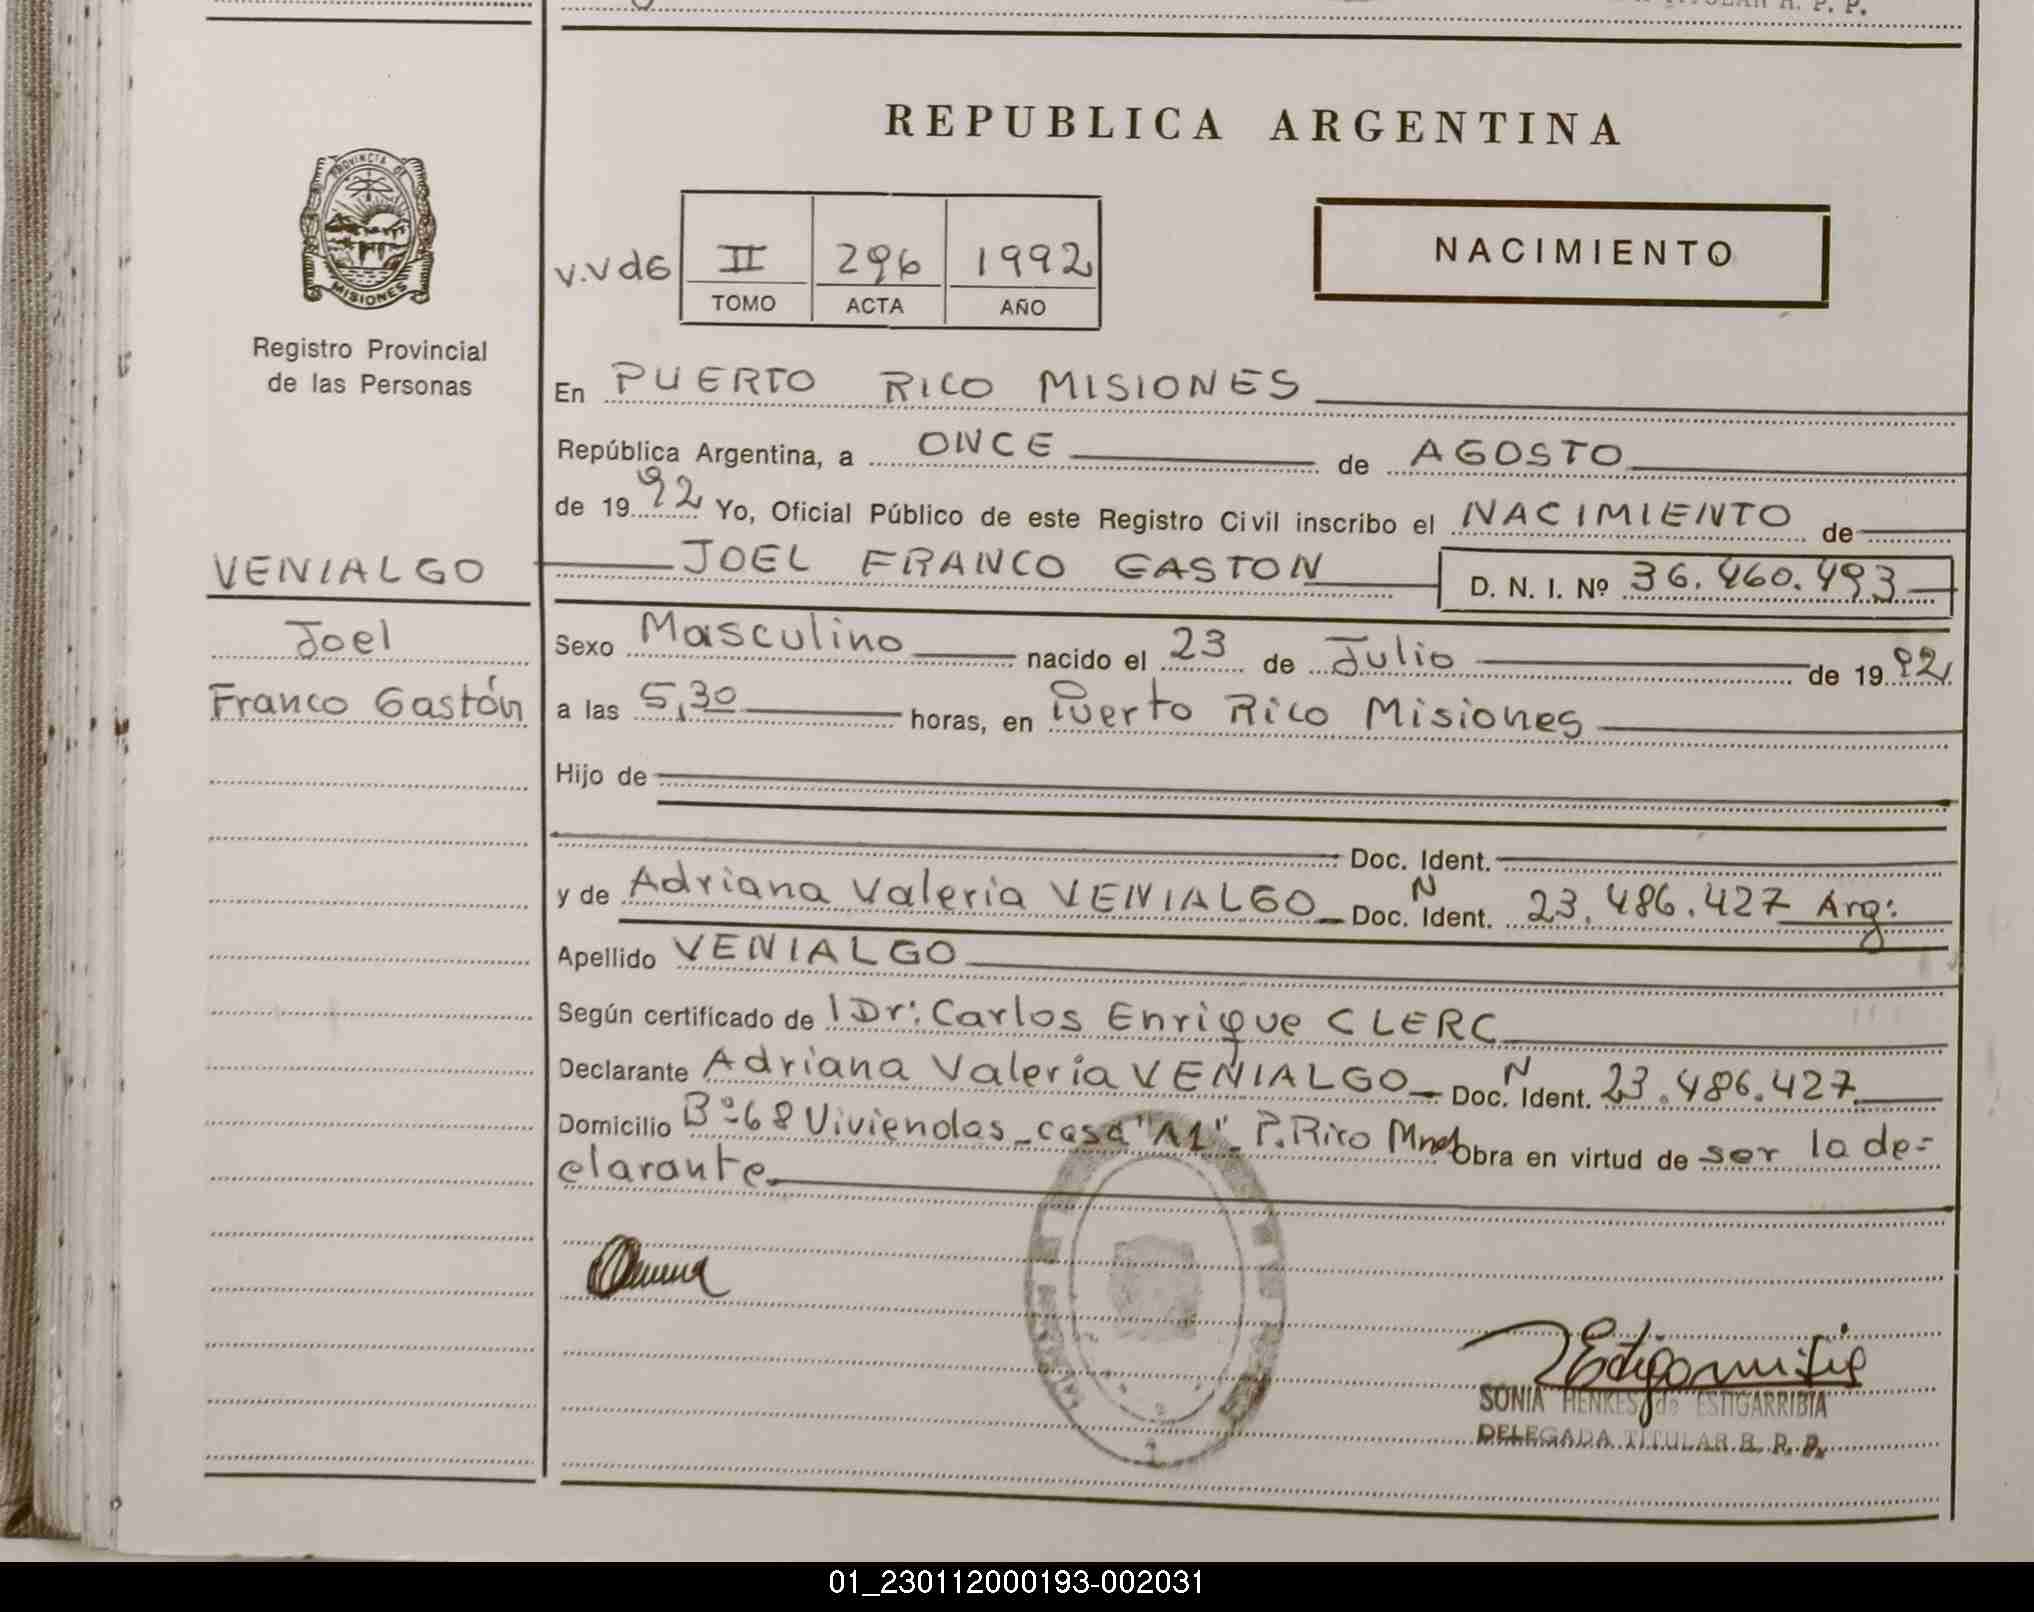 REPUBLICA ARGENTINA
PROVINCIA DE MISIONES
Registro Provincial
de las Personas
NACIMIENTO
V.V de II 296 1992
TOMO ACTA AÑO
En PUERTO RICO MISIONES
República Argentina, a ONCE de AGOSTO
de 1992 Yo, Oficial Público de este Registro Civil inscribo el NACIMIENTO de
VENIALGO
JOEL FRANCO GASTON D. N. I. Nº 36.460.493
Joel
Sexo Masculino nacido el 23 de Julio de 1992
Franco Gastón
a las 5,30 horas, en Puerto Rico Misiones
Hijo de
Doc. Ident.
y de Adriana Valeria VENIALGO Doc. N Ident. 23.486.427 Arg:
Apellido VENIALGO
Según certificado de l Dr: Carlos Enrique CLERC
Declarante Adriana Valeria VENIALGO Doc. N Ident. 23.486.427
Domicilio Bº 68 Viviendas - casa "A1" - P. Rico Mnes Obra en virtud de ser la de=
clarante
SONIA HENKES de ESTIGARRIBIA
DELEGADA TITULAR R. P. P.
01_230112000193-002031